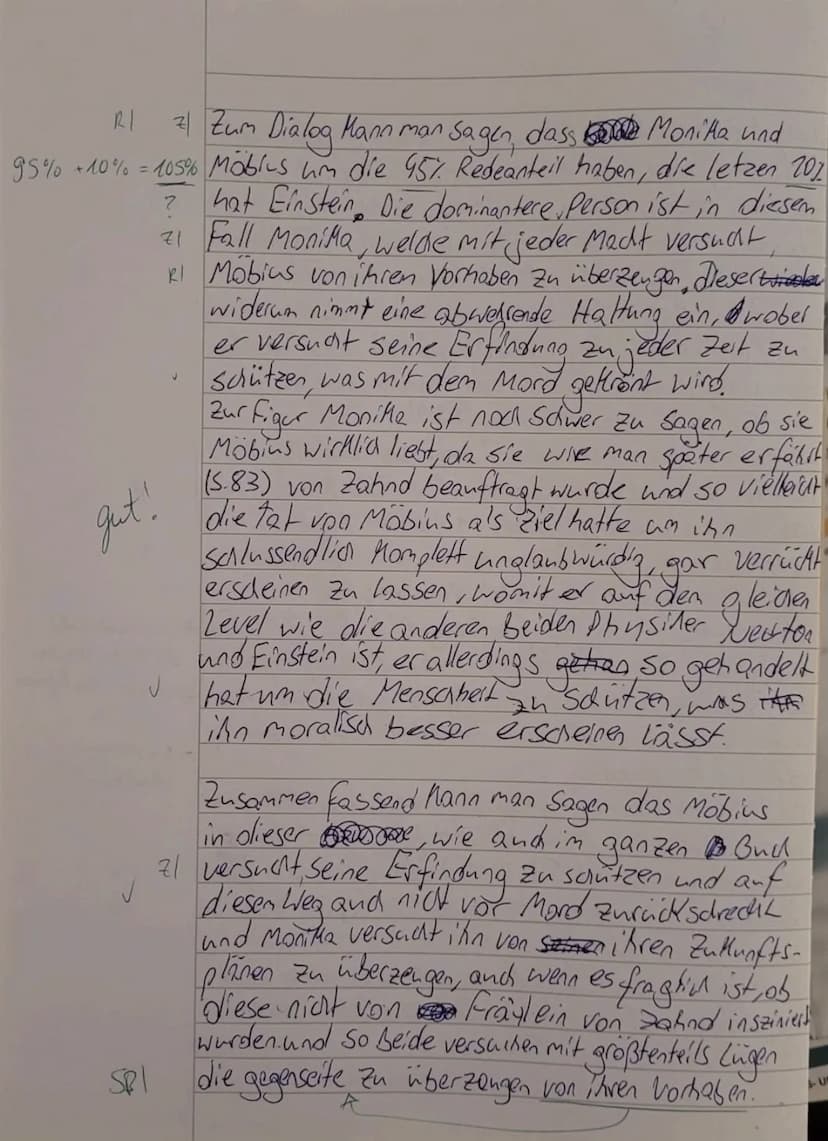 R| Z| Zum Dialog kann man sagen, dass Monika und
95% + 10% = 105% Möbius um die 95% Redeanteil haben, die letzen 10%
? hat Einstein. Die dominantere Person ist in diesem
Z| Fall Monika, welche mit jeder Macht versucht
R| Möbius von ihren Vorhaben zu überzeugen. Dieser
widerum nimmt eine abwehrende Haltung ein, wobei
er versucht seine Erfindung zu jeder Zeit zu
schützen, was mit dem Mord gekrönt wird.
Zur Figur Monika ist noch schwer zu sagen, ob sie
Möbius wirklich liebt, da sie wie man später erfährt
(S.83) von Zahnd beauftragt wurde und so vielleicht
gut! die Tat von Möbius als Ziel hatte um ihn
schlussendlich komplett unglaubwürdig, gar verrückt
erscheinen zu lassen, womit er auf den gleichen
Level wie die anderen beiden Physiker Newton
und Einstein ist, er allerdings so gehandelt
hat um die Menschheit zu schützen, was
ihn moralisch besser erscheinen lässt.
Zusammenfassend kann man sagen das Möbius
in dieser , wie auch im ganzen Buch
Z| versucht, seine Erfindung zu schützen und auf
diesen Weg auch nicht vor Mord zurückschreckt
und Monika versucht ihn von ihren Zukunfts-
plänen zu überzeugen, auch wenn es fraglich ist, ob
diese nicht von Fräylein von Zahnd insziniert
wurden und so beide versuchen mit größtenteils Lügen
SB| die gegenseite zu überzeugen von ihren Vorhaben.